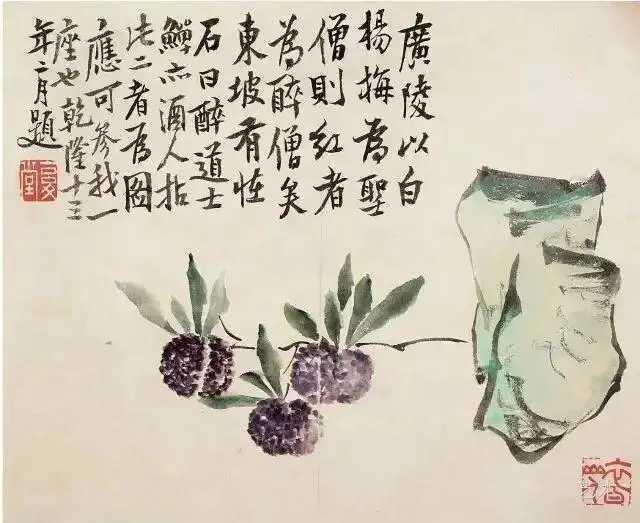 廣陵以白
楊梅為聖
僧則紅者
為醉僧矣
東坡有怪
石曰醉道士
鱓亦酒人拈
此二者為圖
應可參我一
座也乾隆十三
年二月題